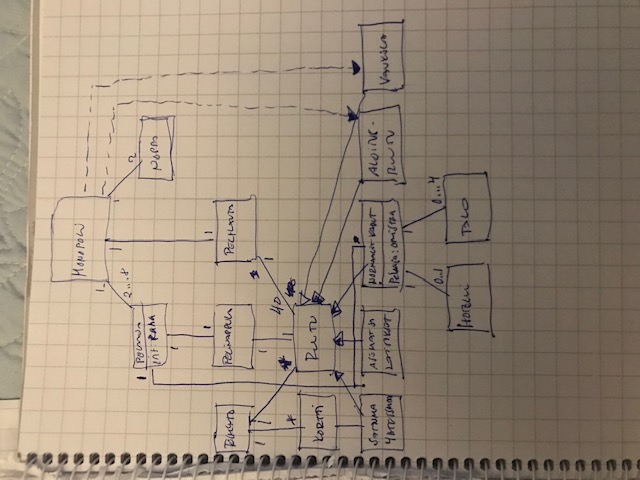 MONOPOLI
1
1
1
2...8
2
1
PELAAJA
INT: RAHA
NOPPA
1
1
1
1
TOIMINTO
PELINAPPULA
PELILAUTA
1
1
1
1
40
*
*
1
KORTTI
RUUTU
*
SATTUMA
YHTEISMAA
ASEMAT JA
LAITOKSET
NORMAALIT KADUT
PELAAJA: OMISTAJA
ALOITUS-
RUUTU
VANKILA
1
1
0..1
0...4
HOTELLI
TALO